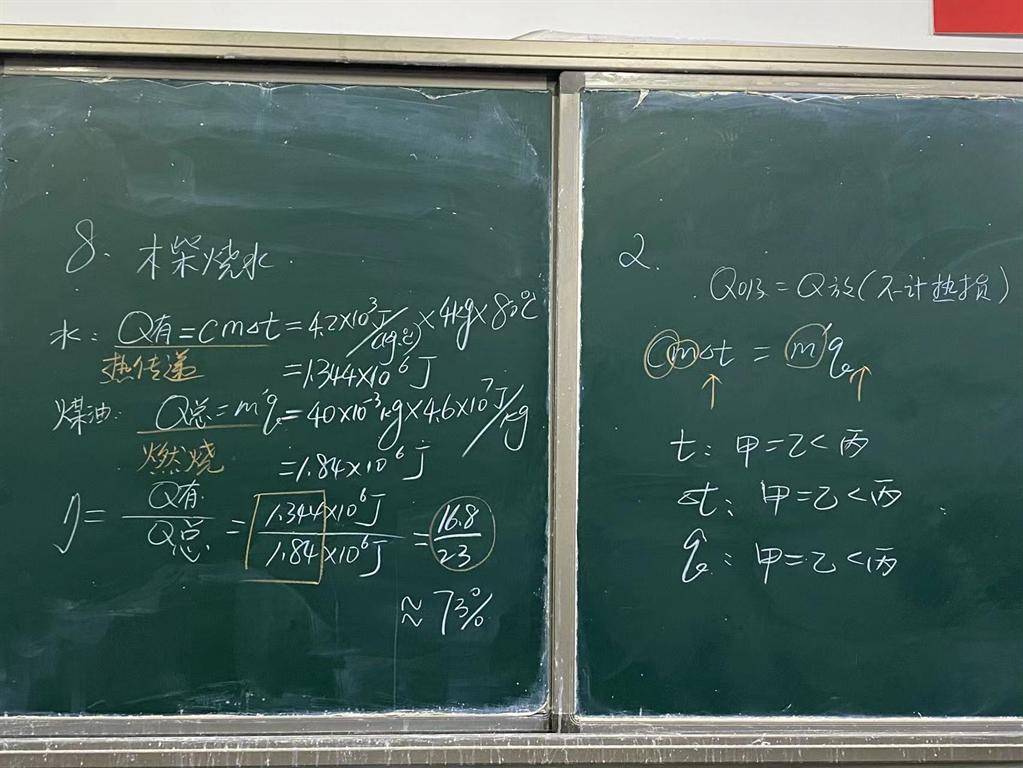 8. 木柴烧水
水: Q有=cm△t=4.2×10³J/(kg·℃)×4kg×80℃
热传递
=1.344×10⁶J
煤油: Q总=m'q=40×10⁻³kg×4.6×10⁷J/kg
燃烧
=1.84×10⁶J
η=Q有/Q总=1.344×10⁶J/1.84×10⁶J=16.8/23
≈73%
2.
Q吸=Q放(不计热损)
cm△t=m'q
↑ ↑
t: 甲=乙<丙
△t: 甲=乙<丙
q: 甲=乙<丙